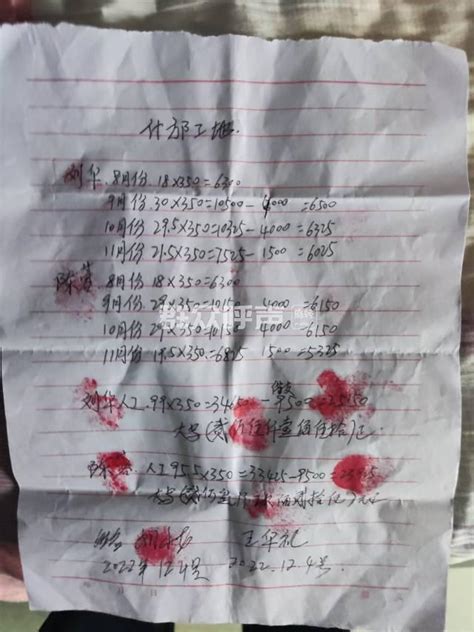 什邡工地
刘华 8月份 18×350=6300
9月份 30×350=10500- 4000 =6500
10月份 29.5×350=10325- 4000 =6325
11月份 21.5×350=7525- 1500 =6025
陈 8月份 18×350=6300
9月份 29×350=10150 4000 =6150
10月份 29×350=10150 4000 =6150
11月份 19.5×350=6825 1500 =5325
刘华人工 99×350=34650-9500=25150
大写(贰万伍仟壹佰伍拾)元
陈 人工 95.5×350=33425-9500=
大写(贰万
王华礼
2022年12月4号 2022.12.4号
群众呼声